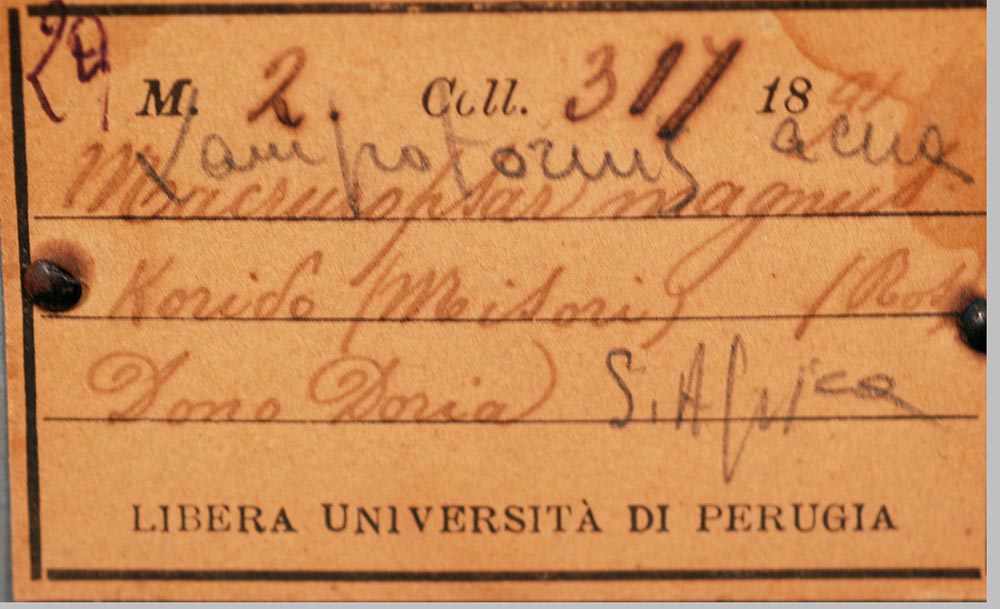 M. 2. Coll. 317 18
Lamprotornis acua
Macruropsar magnus
Korido (Misori) (Ros
Dono Doria S. Africa
LIBERA UNIVERSITÀ DI PERUGIA